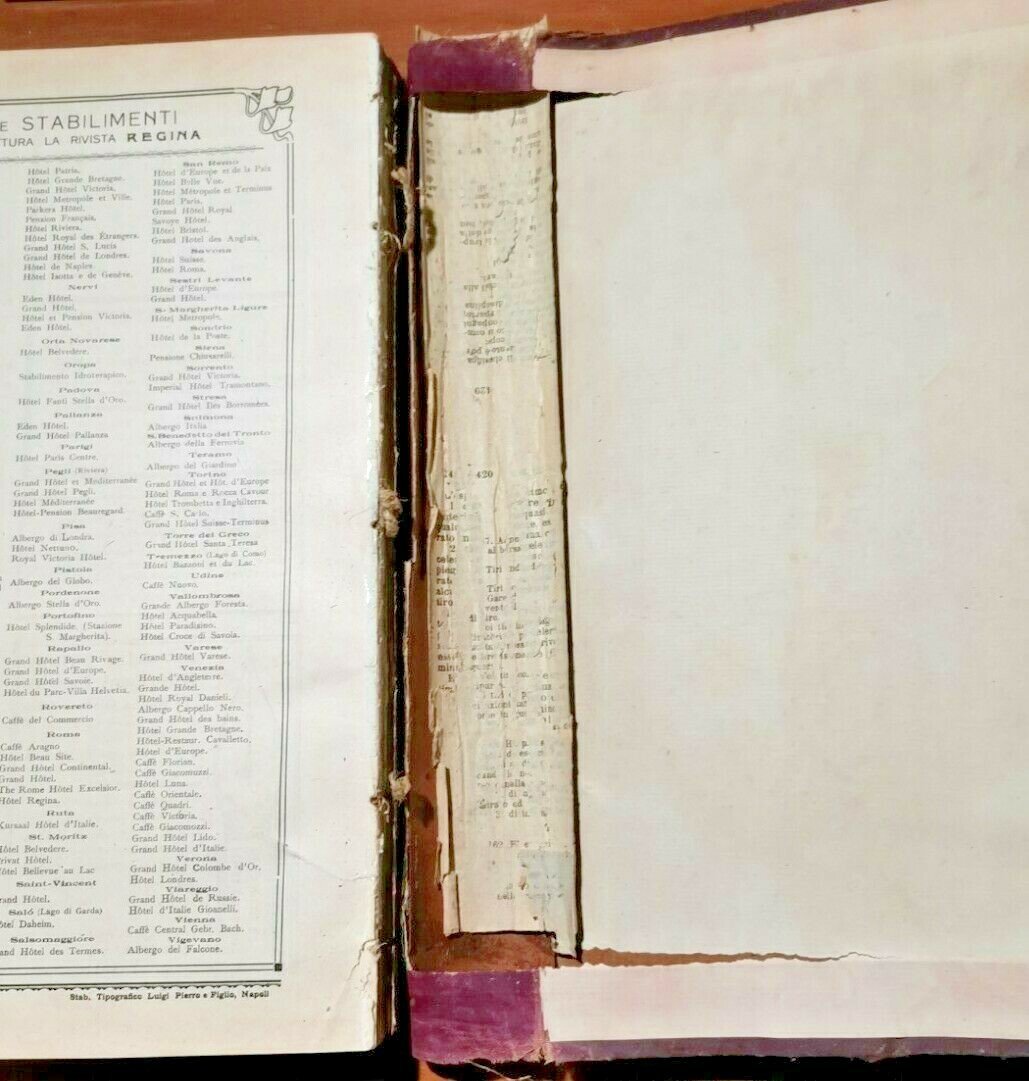 E STABILIMENTI
TURA LA RIVISTA REGINA
Hôtel Patria.
Hôtel Grande Bretagne.
Grand Hôtel Victoria.
Hôtel Metropole et Ville.
Parkers Hôtel.
Pension Français.
Hôtel Riviera.
Hôtel Royal des Étrangers.
Grand Hôtel S. Lucia
Grand Hôtel de Londres.
Hôtel de Naples.
Hôtel Isotta e de Genève.
Nervi
Eden Hôtel.
Grand Hôtel.
Hôtel et Pension Victoria.
Eden Hôtel.
Orta Novarese
Hôtel Belvedere.
Oropa
Stabilimento Idroterapico.
Padova
Hôtel Fanti Stella d'Oro.
Pallanza
Eden Hôtel.
Grand Hôtel Pallanza
Parigi
Hôtel Paris Centre.
Pegli (Riviera)
Grand Hôtel et Mediterranée
Grand Hôtel Pegli.
Hôtel Méditerranée
Hôtel-Pension Beauregard.
Pisa
Albergo di Londra.
Hôtel Nettuno.
Royal Victoria Hôtel.
Pistoia
Albergo del Globo.
Pordenone
Albergo Stella d'Oro.
Portofino
Hôtel Splendide. (Stazione
S. Margherita).
Rapallo
Grand Hôtel Beau Rivage.
Grand Hôtel d'Europe.
Grand Hôtel Savoie.
Hôtel du Parc-Villa Helvetia.
Rovereto
Caffè del Commercio
Roma
Caffè Aragno
Hôtel Beau Site.
Grand Hôtel Continental.
Grand Hôtel.
The Rome Hôtel Excelsior.
Hôtel Regina.
Ruta
Kursaal Hôtel d'Italie.
St. Moritz
Hôtel Belvedere.
rivat Hôtel.
Hôtel Bellevue au Lac
Saint-Vincent
rand Hôtel.
Salò (Lago di Garda)
ôtel Daheim.
Salsomaggiore
and Hôtel des Termes.
San Remo
Hôtel d'Europe et de la Paix
Hôtel Belle Vue.
Hôtel Métropole et Terminus
Hôtel Paris.
Grand Hôtel Royal
Savoye Hôtel.
Hôtel Bristol.
Grand Hotel des Anglais.
Savona
Hôtel Suisse.
Hôtel Roma.
Sestri Levante
Hôtel d'Europe.
Grand Hôtel.
S. Margherita Ligure
Hôtel Metropole.
Sondrio
Hôtel de la Poste.
Siena
Pensione Chiusarelli.
Sorrento
Grand Hôtel Victoria.
Imperial Hôtel Tramontano.
Stresa
Grand Hôtel Iles Borromées.
Sulmona
Albergo Italia
S. Benedetto del Tronto
Albergo della Ferrovia
Teramo
Albergo del Giardino
Torino
Grand Hôtel et Hôt. d'Europe
Hôtel Roma e Rocca Cavour
Hôtel Trombetta e Inghilterra.
Caffè S. Carlo.
Grand Hôtel Suisse-Terminus
Torre del Greco
Grand Hôtel Santa Teresa
Tremezzo (Lago di Como)
Hôtel Bazzoni et du Lac.
Udine
Caffè Nuovo.
Vallombrosa
Grande Albergo Foresta.
Hôtel Acquabella
Hôtel Paradisino.
Hôtel Croce di Savoia.
Varese
Grand Hôtel Varese.
Venezia
Hôtel d'Angleterre.
Grande Hôtel.
Hôtel Royal Danieli.
Albergo Cappello Nero.
Grand Hôtel des bains.
Hôtel Grande Bretagne.
Hôtel-Restaur. Cavalletto.
Hôtel d'Europe.
Caffè Florian.
Caffè Giacomuzzi.
Hôtel Luna.
Caffè Orientale.
Caffè Quadri.
Caffè Victoria.
Caffè Giacomozzi.
Grand Hôtel Lido.
Grand Hôtel d'Italie.
Verona
Grand Hôtel Colombe d'Or.
Hôtel Londres.
Viareggio
Grand Hôtel de Russie.
Hôtel d'Italie Gioanelli.
Vienna
Caffè Central Gebr. Bach.
Vigevano
Albergo del Falcone.
Stab. Tipografico Luigi Pierro e Figlio, Napoli
420